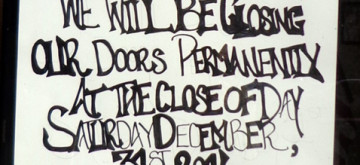 WE WILL BE CLOSING
OUR DOORS PERMANENTLY
AT THE CLOSE OF DAY
SATURDAY DECEMBER,